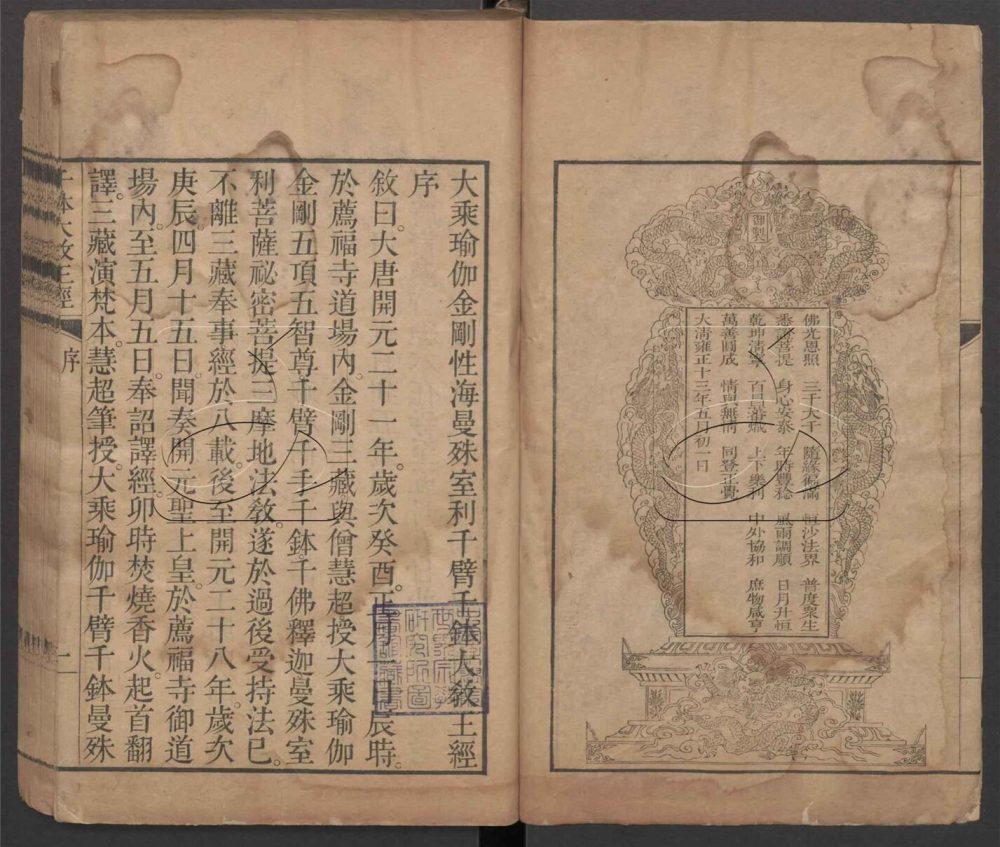 御製
佛光恩照 三千大千 隨緣徧滿 恒沙法界 普度衆生
悉 菩提 身心安泰 年時豐稔 風雨調順 日月升恒
乾坤清寧 百 上下樂利 中外協和 庶物咸亨
萬善圓成 情與無情 同登正覺
大清雍正十三年五月初一日
大乘瑜伽金剛性海曼殊室利千臂千鉢大敎王經
序
敘曰。大唐開元二十一年。歲次癸酉。正月一日。辰時。
於薦福寺道場內。金剛三藏與僧慧超。授大乘瑜伽
金剛五頂五智尊千臂千手千鉢千佛釋迦曼殊室
利菩薩祕密菩提三摩地法敎。遂於過後受持法已。
不離三藏奉事經於八載。後至開元二十八年。歲次
庚辰。四月十五日。聞奏開元聖上皇。於薦福寺御道
場內。至五月五日。奉詔譯經。卯時焚燒香火。起首翻
譯。三藏演梵本。慧超筆授。大乘瑜伽千臂千鉢曼殊
千鉢大敎王經 序 一